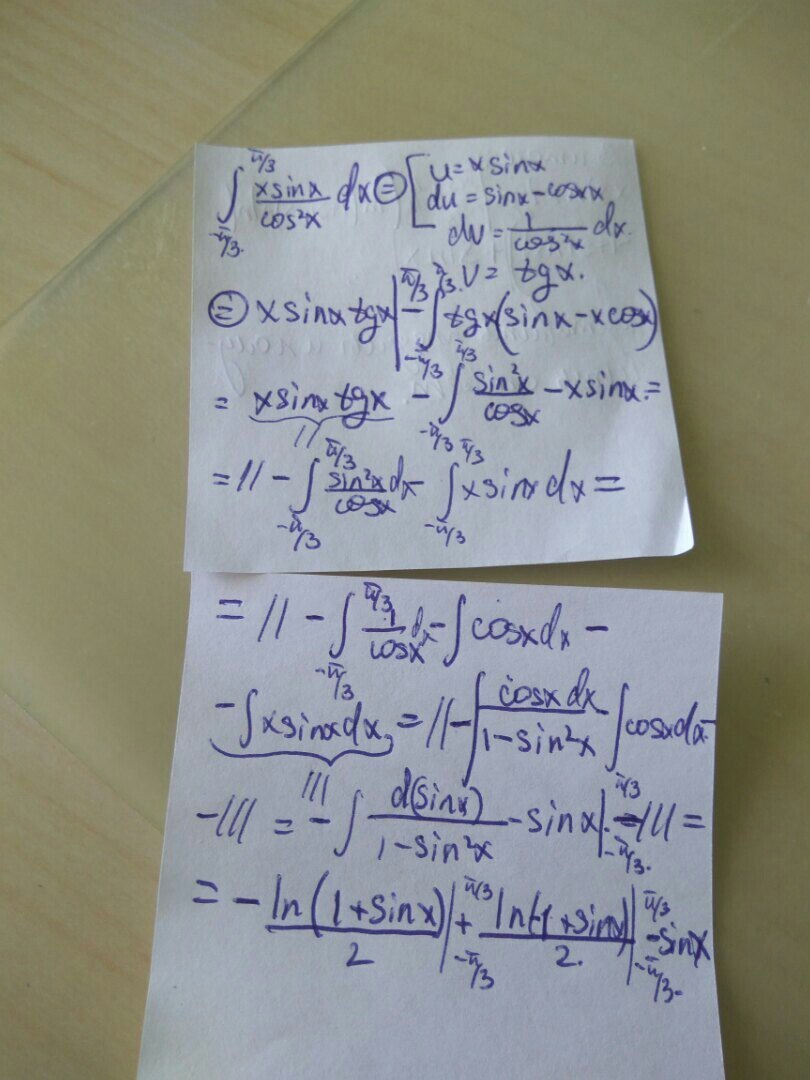 ∫_{-π/3}^{π/3} xsinx/cos²x dx ⊜ [ u = xsinx
du = sinx - cosxx
dv = 1/cos²x dx.
v = tgx.
⊜ xsinxtgx|_{-π/3}^{π/3} - ∫_{-π/3}^{π/3} tgx(sinx - xcosx)
= xsinxtgx - ∫_{-π/3}^{π/3} sin²x/cosx - xsinx =
//
= // - ∫_{-π/3}^{π/3} sin²x/cosx dx - ∫_{-π/3}^{π/3} xsinxdx =
= // - ∫_{-π/3}^{π/3} 1/cosx dx - ∫cosxdx -
- ∫xsinxdx = // - ∫ cosxdx/(1-sin²x) - ∫cosxdx -
///
- /// = - ∫ d(sinx)/(1-sin²x) - sinx|_{-π/3}^{π/3} - /// =
= - ln(1+sinx)/2 |_{-π/3}^{π/3} + ln(-1+sinx)/2. |_{-π/3}^{π/3} - sinx